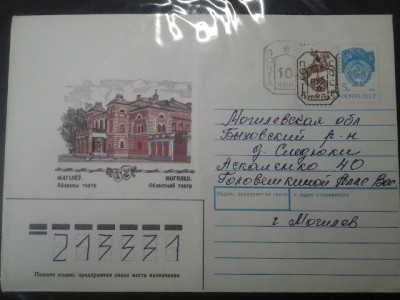 ПОЧТА
10
КОП
5к
ПОЧТА СССР
Могилевская обл
Быховский р-н
д. Следюки
Аскаленко 40
Головешкиной Алле Вас.
МАГІЛЁЎ. МОГИЛЕВ.
Абласны тэатр Областной театр
Индекс предприятия связи и адрес отправителя
г Могилев
213331
Пишите индекс предприятия связи места назначения